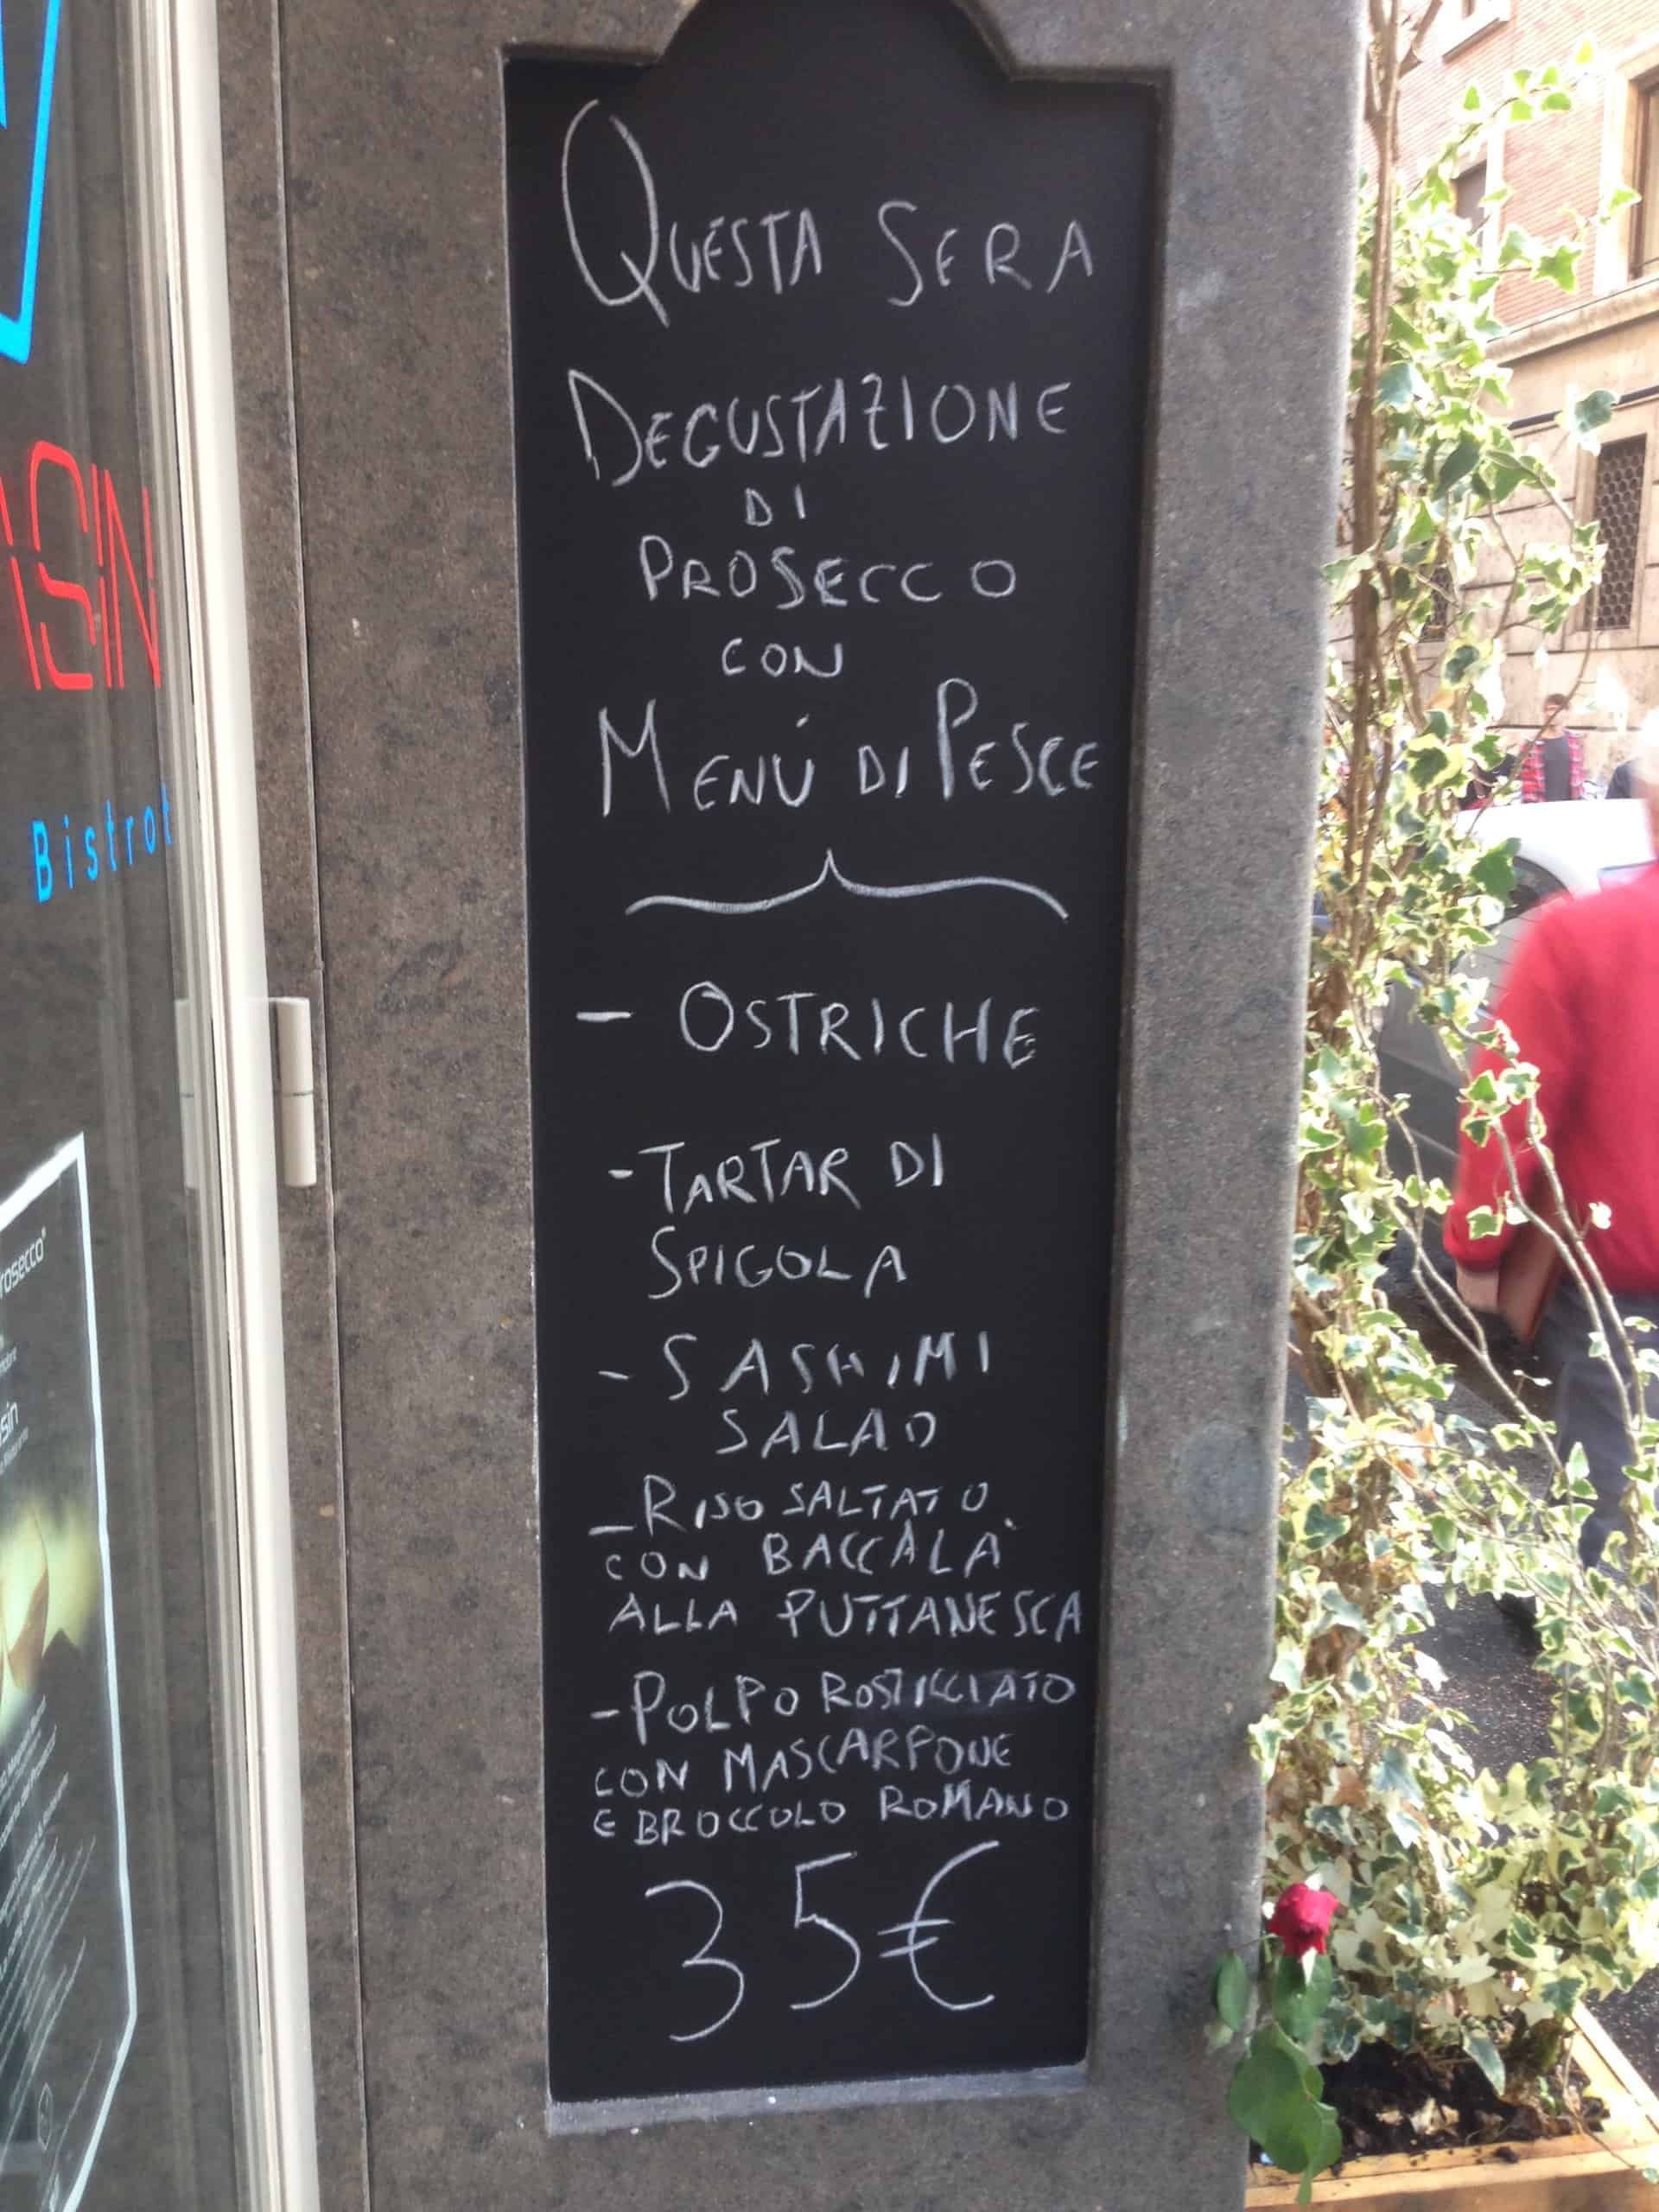 QUESTA SERA
DEGUSTAZIONE
DI
PROSECCO
CON
MENÙ DI PESCE
- OSTRICHE
- TARTAR DI
SPIGOLA
- SASHIMI
SALAD
- RISO SALTATO
CON BACCALÀ
ALLA PUTTANESCA
- POLPO ROSTICCIATO
CON MASCARPONE
E BROCCOLO ROMANO
35€
Bistrot